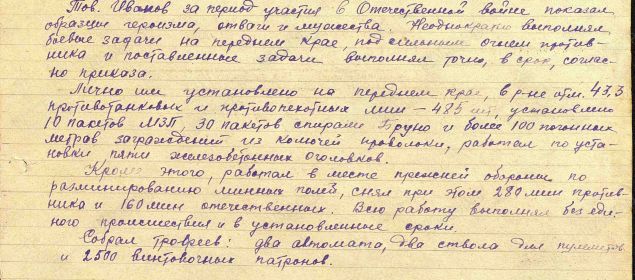 Тов. Иванов за период участия в Отечественной войне показал
образцы героизма, отваги и мужества. Неоднократно выполнял
боевые задачи на переднем крае, под сильным огнем против-
ника и поставленные задачи выполнял точно, в срок, соглас-
но приказа.
Лично им установлено на переднем крае, в р-не отм. 43,3
противотанковых и противопехотных мин – 485 шт, установлено
10 пакетов МЗП, 30 пакетов спирали Бруно и более 100 погонных
метров заграждений из колючей проволоки, работал по уста-
новки пяти железобетонных оголовков.
Кроме этого, работал в месте прежней обороны по
разминированию минных полей, снял при этом 280 мин против-
ника и 160 мин отечественных. Всю работу выполнял без еди-
ного происшествия и в установленные сроки.
Собрал трофеев: два автомата, два ствола для пулеметов
и 2500 винтовочных патронов.